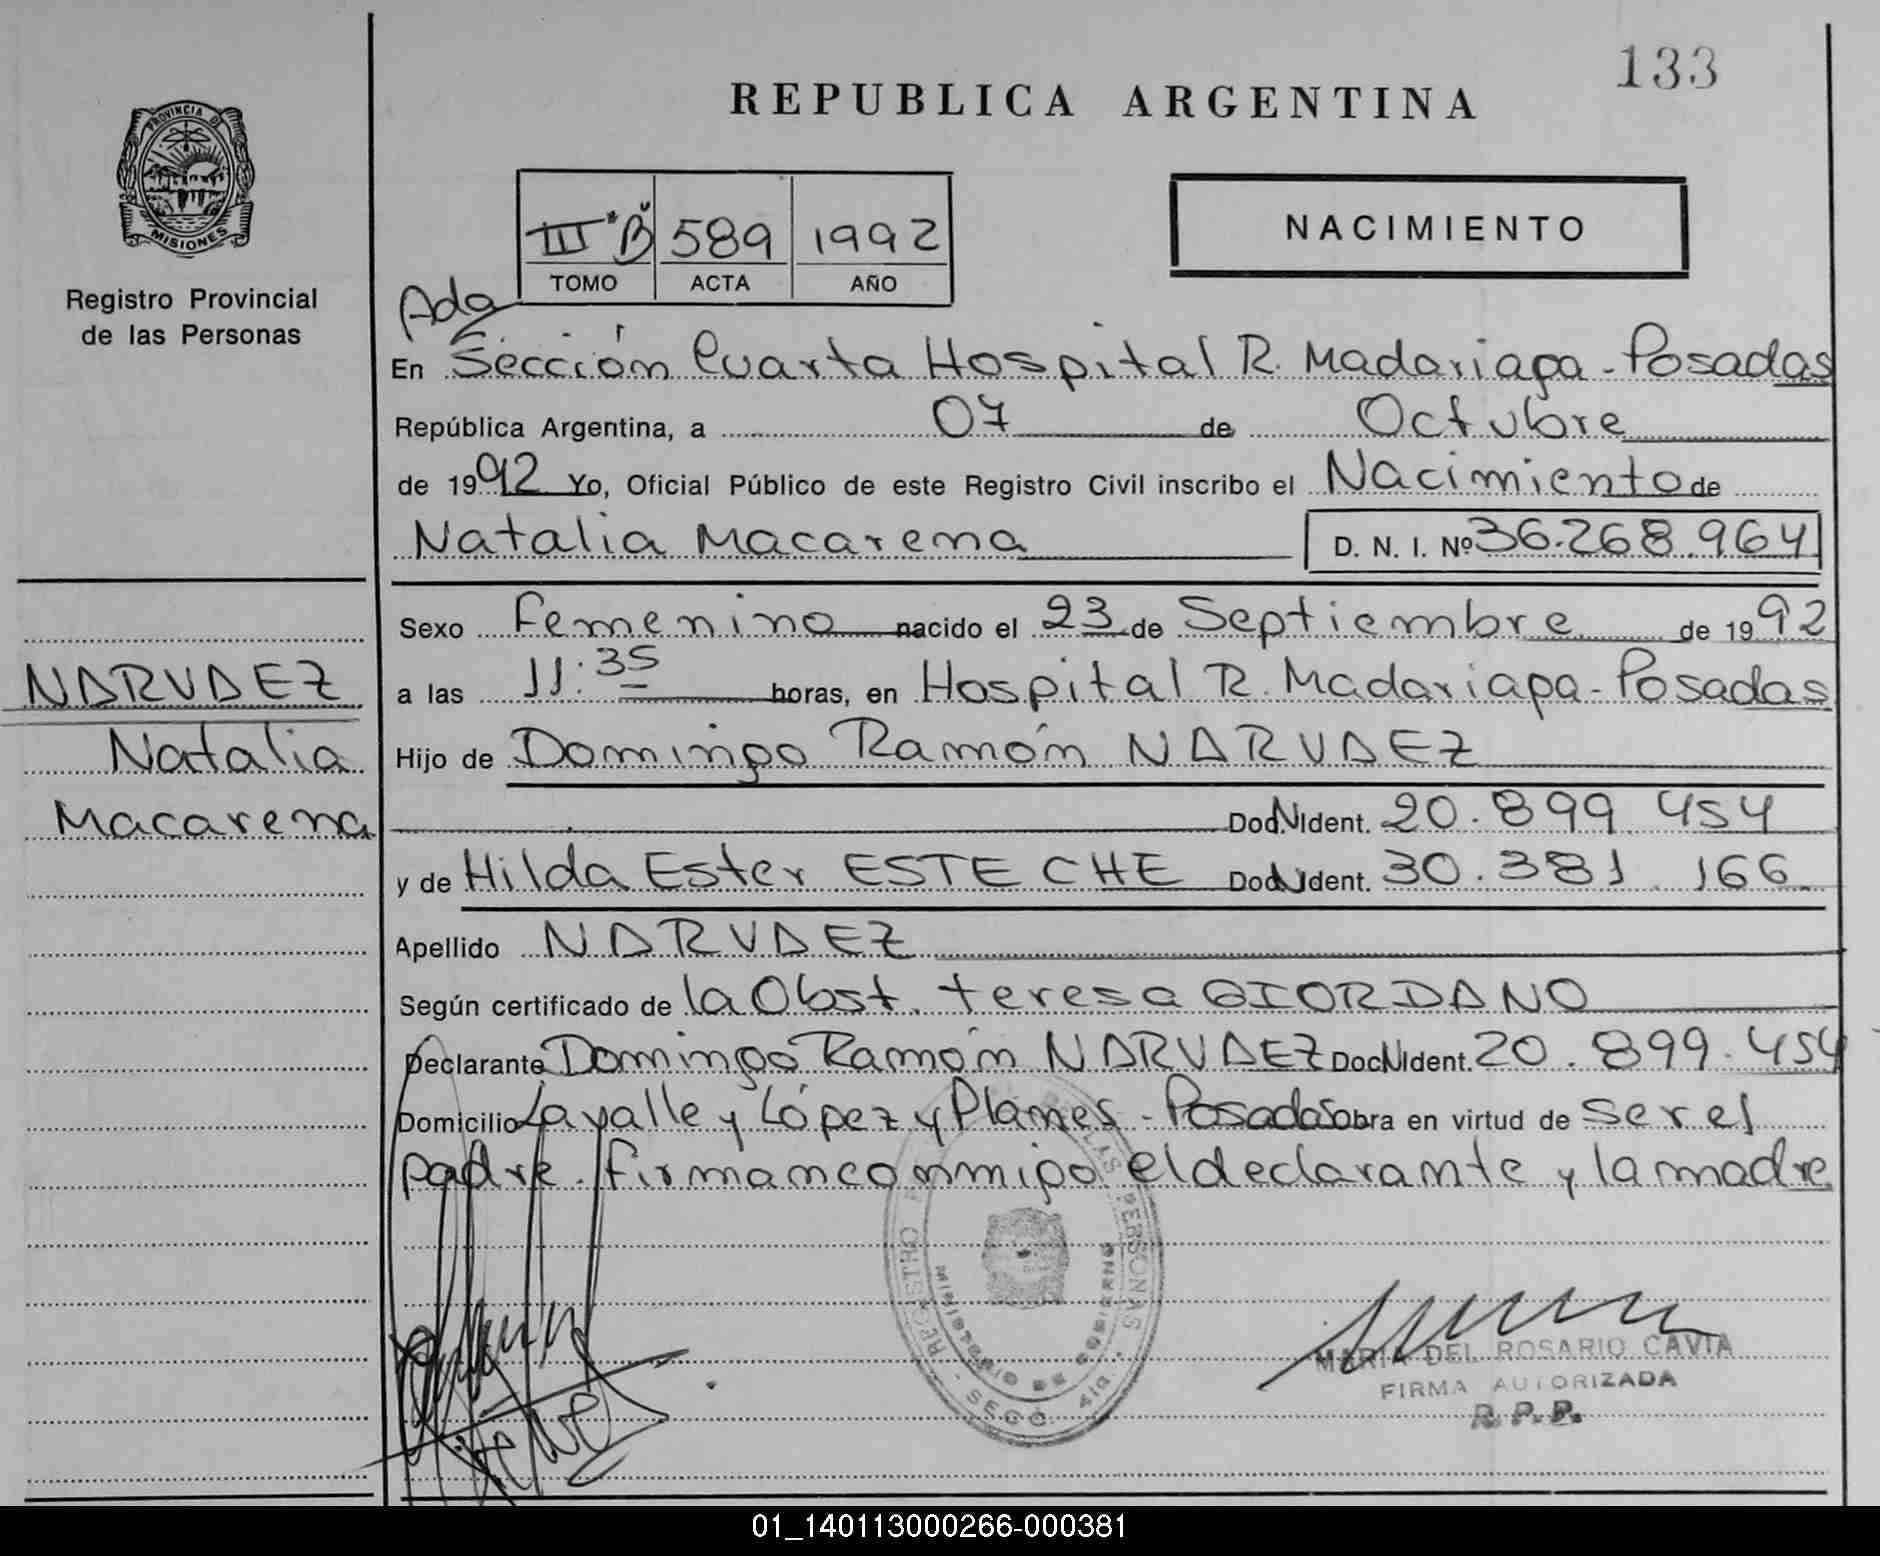 133
REPUBLICA ARGENTINA
PROVINCIA DE
MISIONES
Registro Provincial
de las Personas
III "B" 589 1992
TOMO ACTA AÑO
NACIMIENTO
Ada
En Sección Cuarta Hospital R. Madariaga - Posadas
República Argentina, a 07 de Octubre
de 1992 Yo, Oficial Público de este Registro Civil inscribo el Nacimiento de
Natalia Macarena D. N. I. Nº 36.268.964
Sexo Femenino nacido el 23 de Septiembre de 1992
NARVAEZ
Natalia
Macarena
a las 11:35 horas, en Hospital R. Madariaga - Posadas
Hijo de Domingo Ramón NARVAEZ
Doc.N.Ident. 20.899.454
y de Hilda Ester ESTECHE Doc.N.Ident. 30.381.166
Apellido NARVAEZ
Según certificado de la Obst. teresa GIORDANO
Declarante Domingo Ramón NARVAEZ Doc.N.Ident. 20.899.454
Domicilio Lavalle y López y Planes - Posadas obra en virtud de ser el
padre. firman conmigo el declarante y la madre
MARIA DEL ROSARIO CAVIA
FIRMA AUTORIZADA
R.P.P.
01_140113000266-000381